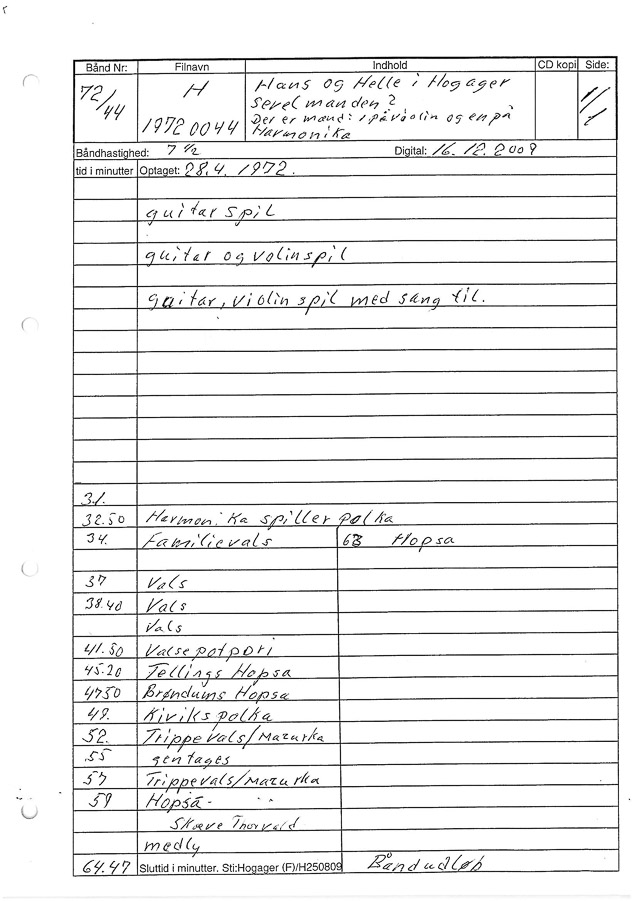 Bånd Nr: Filnavn Indhold CD kopi Side:
72/44 H Hans og Helle i Hogager 1/1
Sevel manden?
19720044 Der er mænd: 1 på violin og en på
Harmonika
Båndhastighed: 7 1/2 Digital: 16.12.2009
tid i minutter Optaget: 28.4. 1972.
guitar spil
guitar og volinspil
guitar, violin spil med sang til.
31.
32.50 Harmonika spiller polka
34. Familievals 63 Hopsa
37 Vals
38.40 Vals
Vals
41.50 Valsepotpori
45.20 Tellings Hopsa
4750 Brøndums Hopsa
49. Kivikspolka
52. Trippevals/Mazurka
55 gentages
57 Trippevals/Mazurka
59 Hopsa -
Skæve Thorvald
medly
64.47 Sluttid i minutter. Sti:Hogager (F)/H250809 Båndudløb